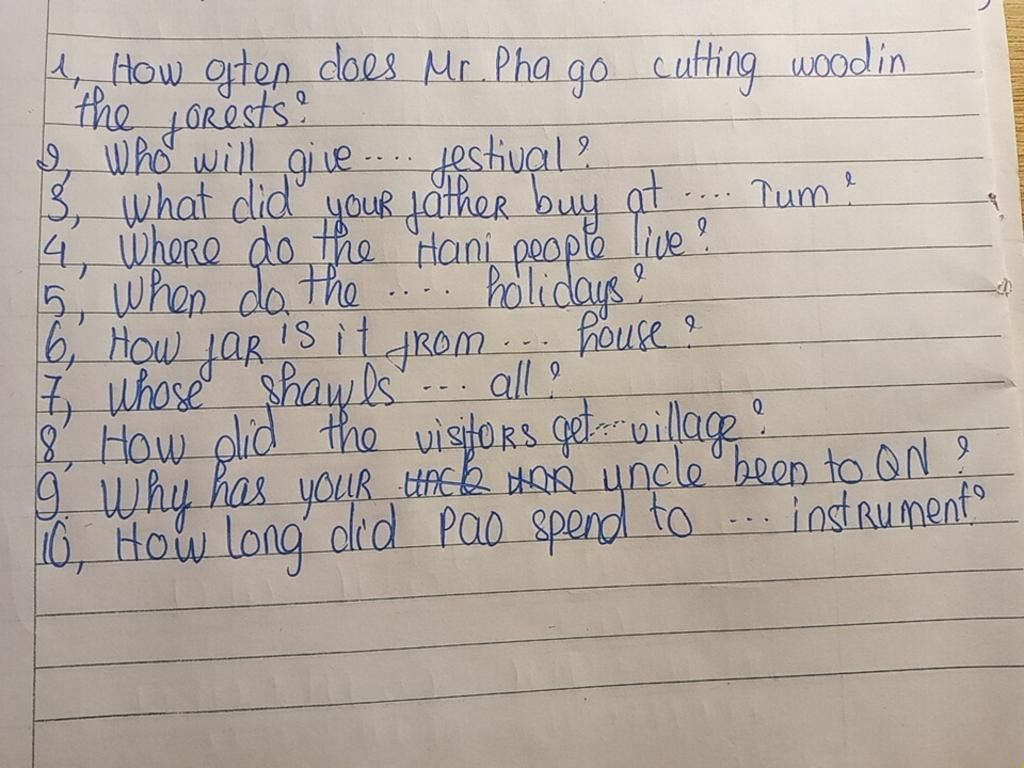 1, How often does Mr. Pha go cutting wood in
the forests?
2, Who will give .... festival?
3, What did your father buy at .... Tum?
4, Where do the Hani people live?
5, When do the .... holidays?
6, How far is it from ... house?
7, Whose shawls ... all?
8, How did the visitors get ... village?
9, Why has your uncle been to QN?
10, How long did Pao spend to ... instrument?